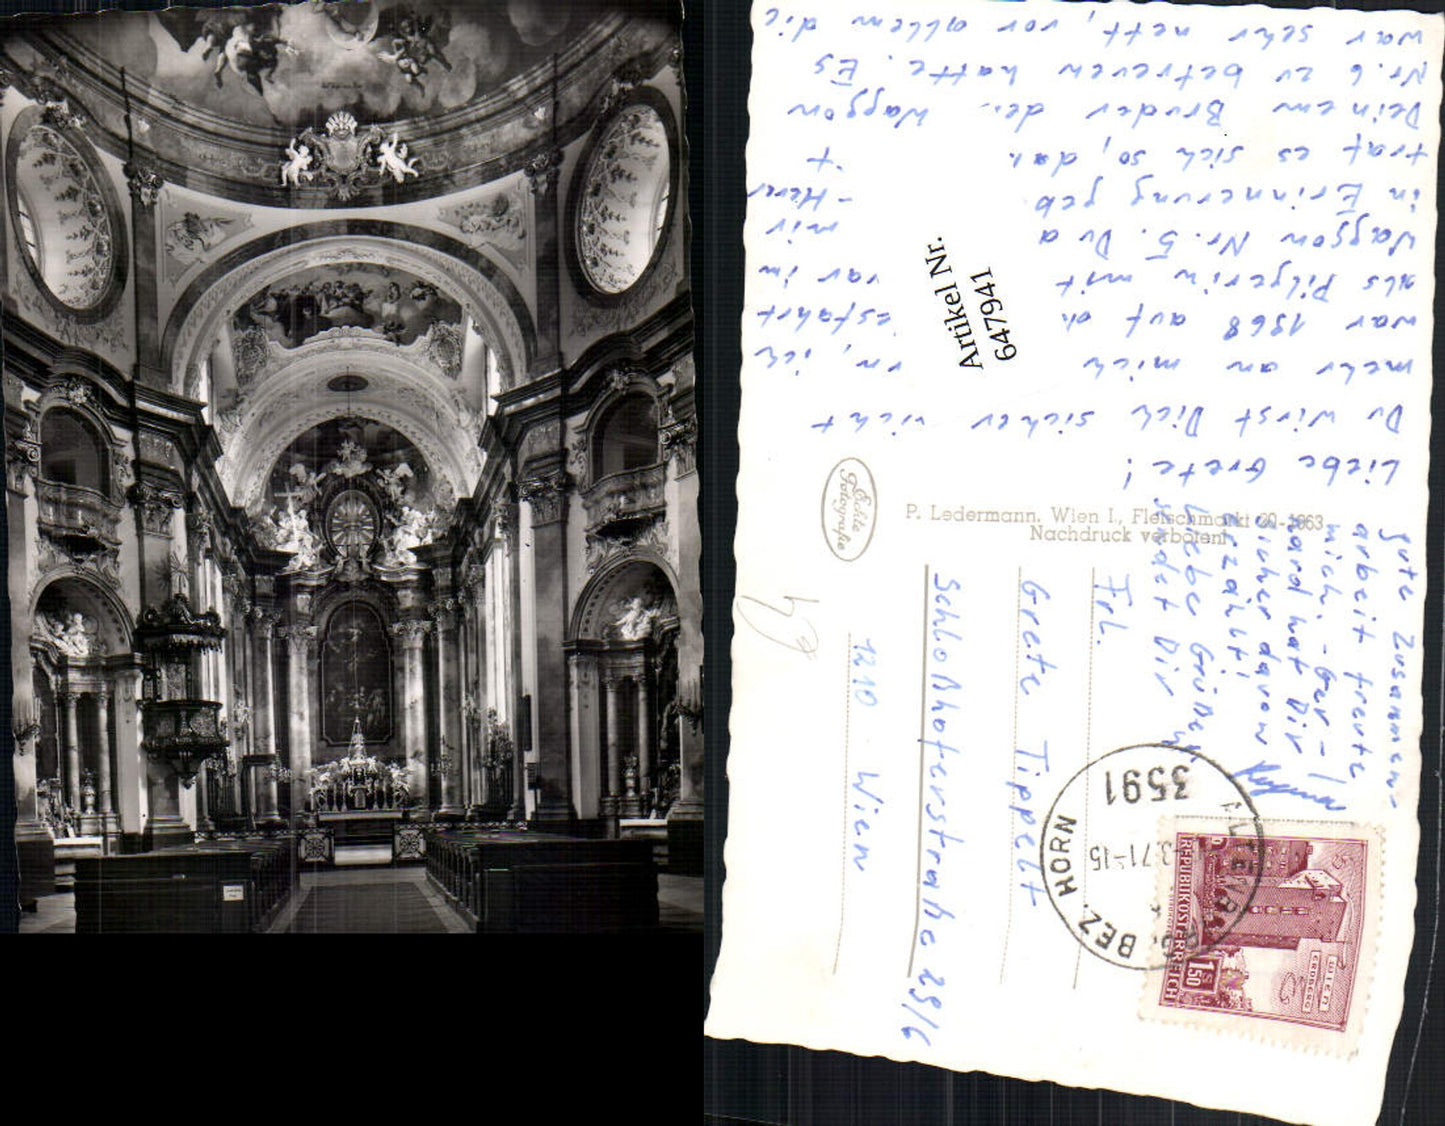 Liebe Grete!
Du wirst Dich sicher nicht
mehr an mich , ich
war 1968 auf
als Pilgerin mit war im
Waggon Nr. 5. Du mir
in Erinnerung geb
traf es sich so, daß
Deinem Bruder den Waggon
Nr. 6 zu betreuen hatte. Es
war sehr nett, vor allem die
gute Zusammen-
arbeit freute
mich. -
hat Dir
sicher davon
erzählt!
Liebe Grüße
sendet Dir
Artikel Nr.
6479411
Echte
Fotografie
P. Ledermann, Wien I., Fleischmarkt 20-1663
Nachdruck verboten!
Frl.
Grete Tippelt
Schloßhoferstraße 29/6
1210 Wien
3591
ALTENBURG, BEZ. HORN
3.71-15
REPUBLIK ÖSTERREICH
S 1.50
WIEN
ERDBERG